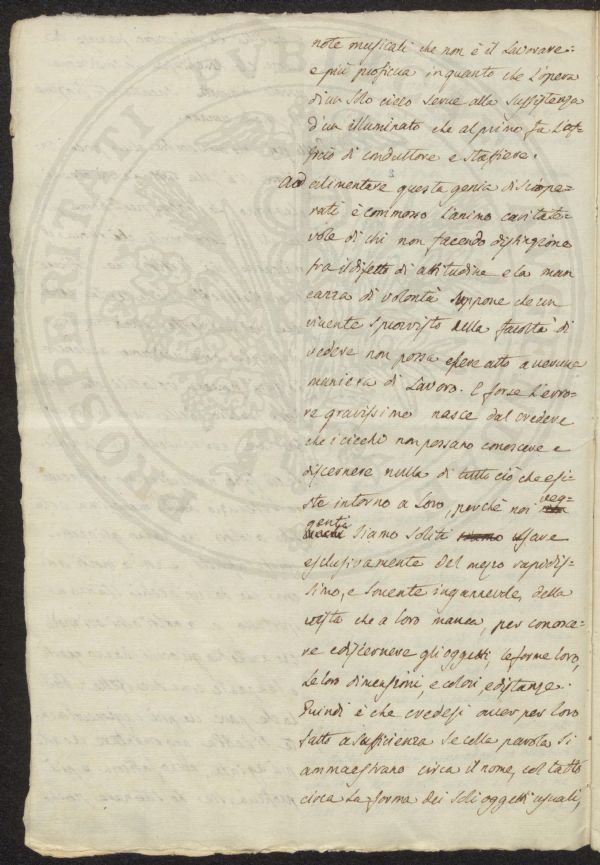 note musicali che non è il Lavorare=
e più proficua inquanto che L'opera
di un solo cieco serve alla sussistenza
d'un illuminato che al primo fa l'of-
ficio di conduttore e staffiere.
Ad alimentare questa genia di sciope-
rati è commosso L'animo caritate-
vole di chi non facendo distinzione
fra il difetto di attitudine e la man
canza di volontà suppone che un
vivente sprovvisto della facoltà di
vedere non possa essere atto a veruna
maniera di Lavoro. E forse L'erro-
re gravissimo nasce dal credere
che i ciechi non possano conoscere e
discernere nulla di tutto ciò che esi-
ste intorno a Loro, perchè noi veg-
genti siamo soliti usare
esclusivamente del mezzo rapidis-
simo, e sovente ingannevole, della
vista che a loro manca, per conosce-
re e discernere gli oggetti, le forme loro,
Le loro dimensioni, e colori, e distanze.
Quindi è che credesi aver per loro
fatto a sufficienza se colla parola si
ammaestrano circa il nome, col tatto
circa La forma dei soli oggetti usuali,
PROSPERITATI PUBLICAE